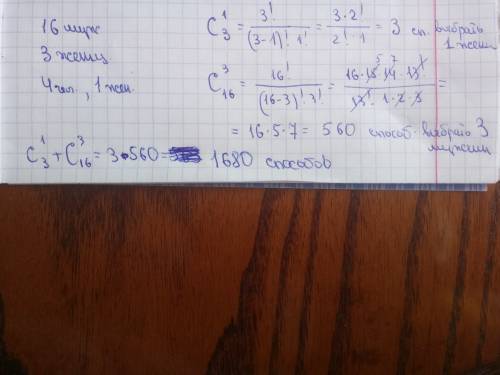 16 мужч
3 женщ
4 чел, 1 жен.
C₃¹ = 3! / (3-1)! 1! = 3·2! / 2!·1 = 3 сп. выбрать 1 женщ
C₁₆³ = 16! / (16-3)! 3! = 16·15·14·13! / 13! 1·2·3 =
5 7
= 16·5·7 = 560 способ. выбрать 3 мужчин
C₃¹ + C₁₆³ = 3·560 = 1680 способов